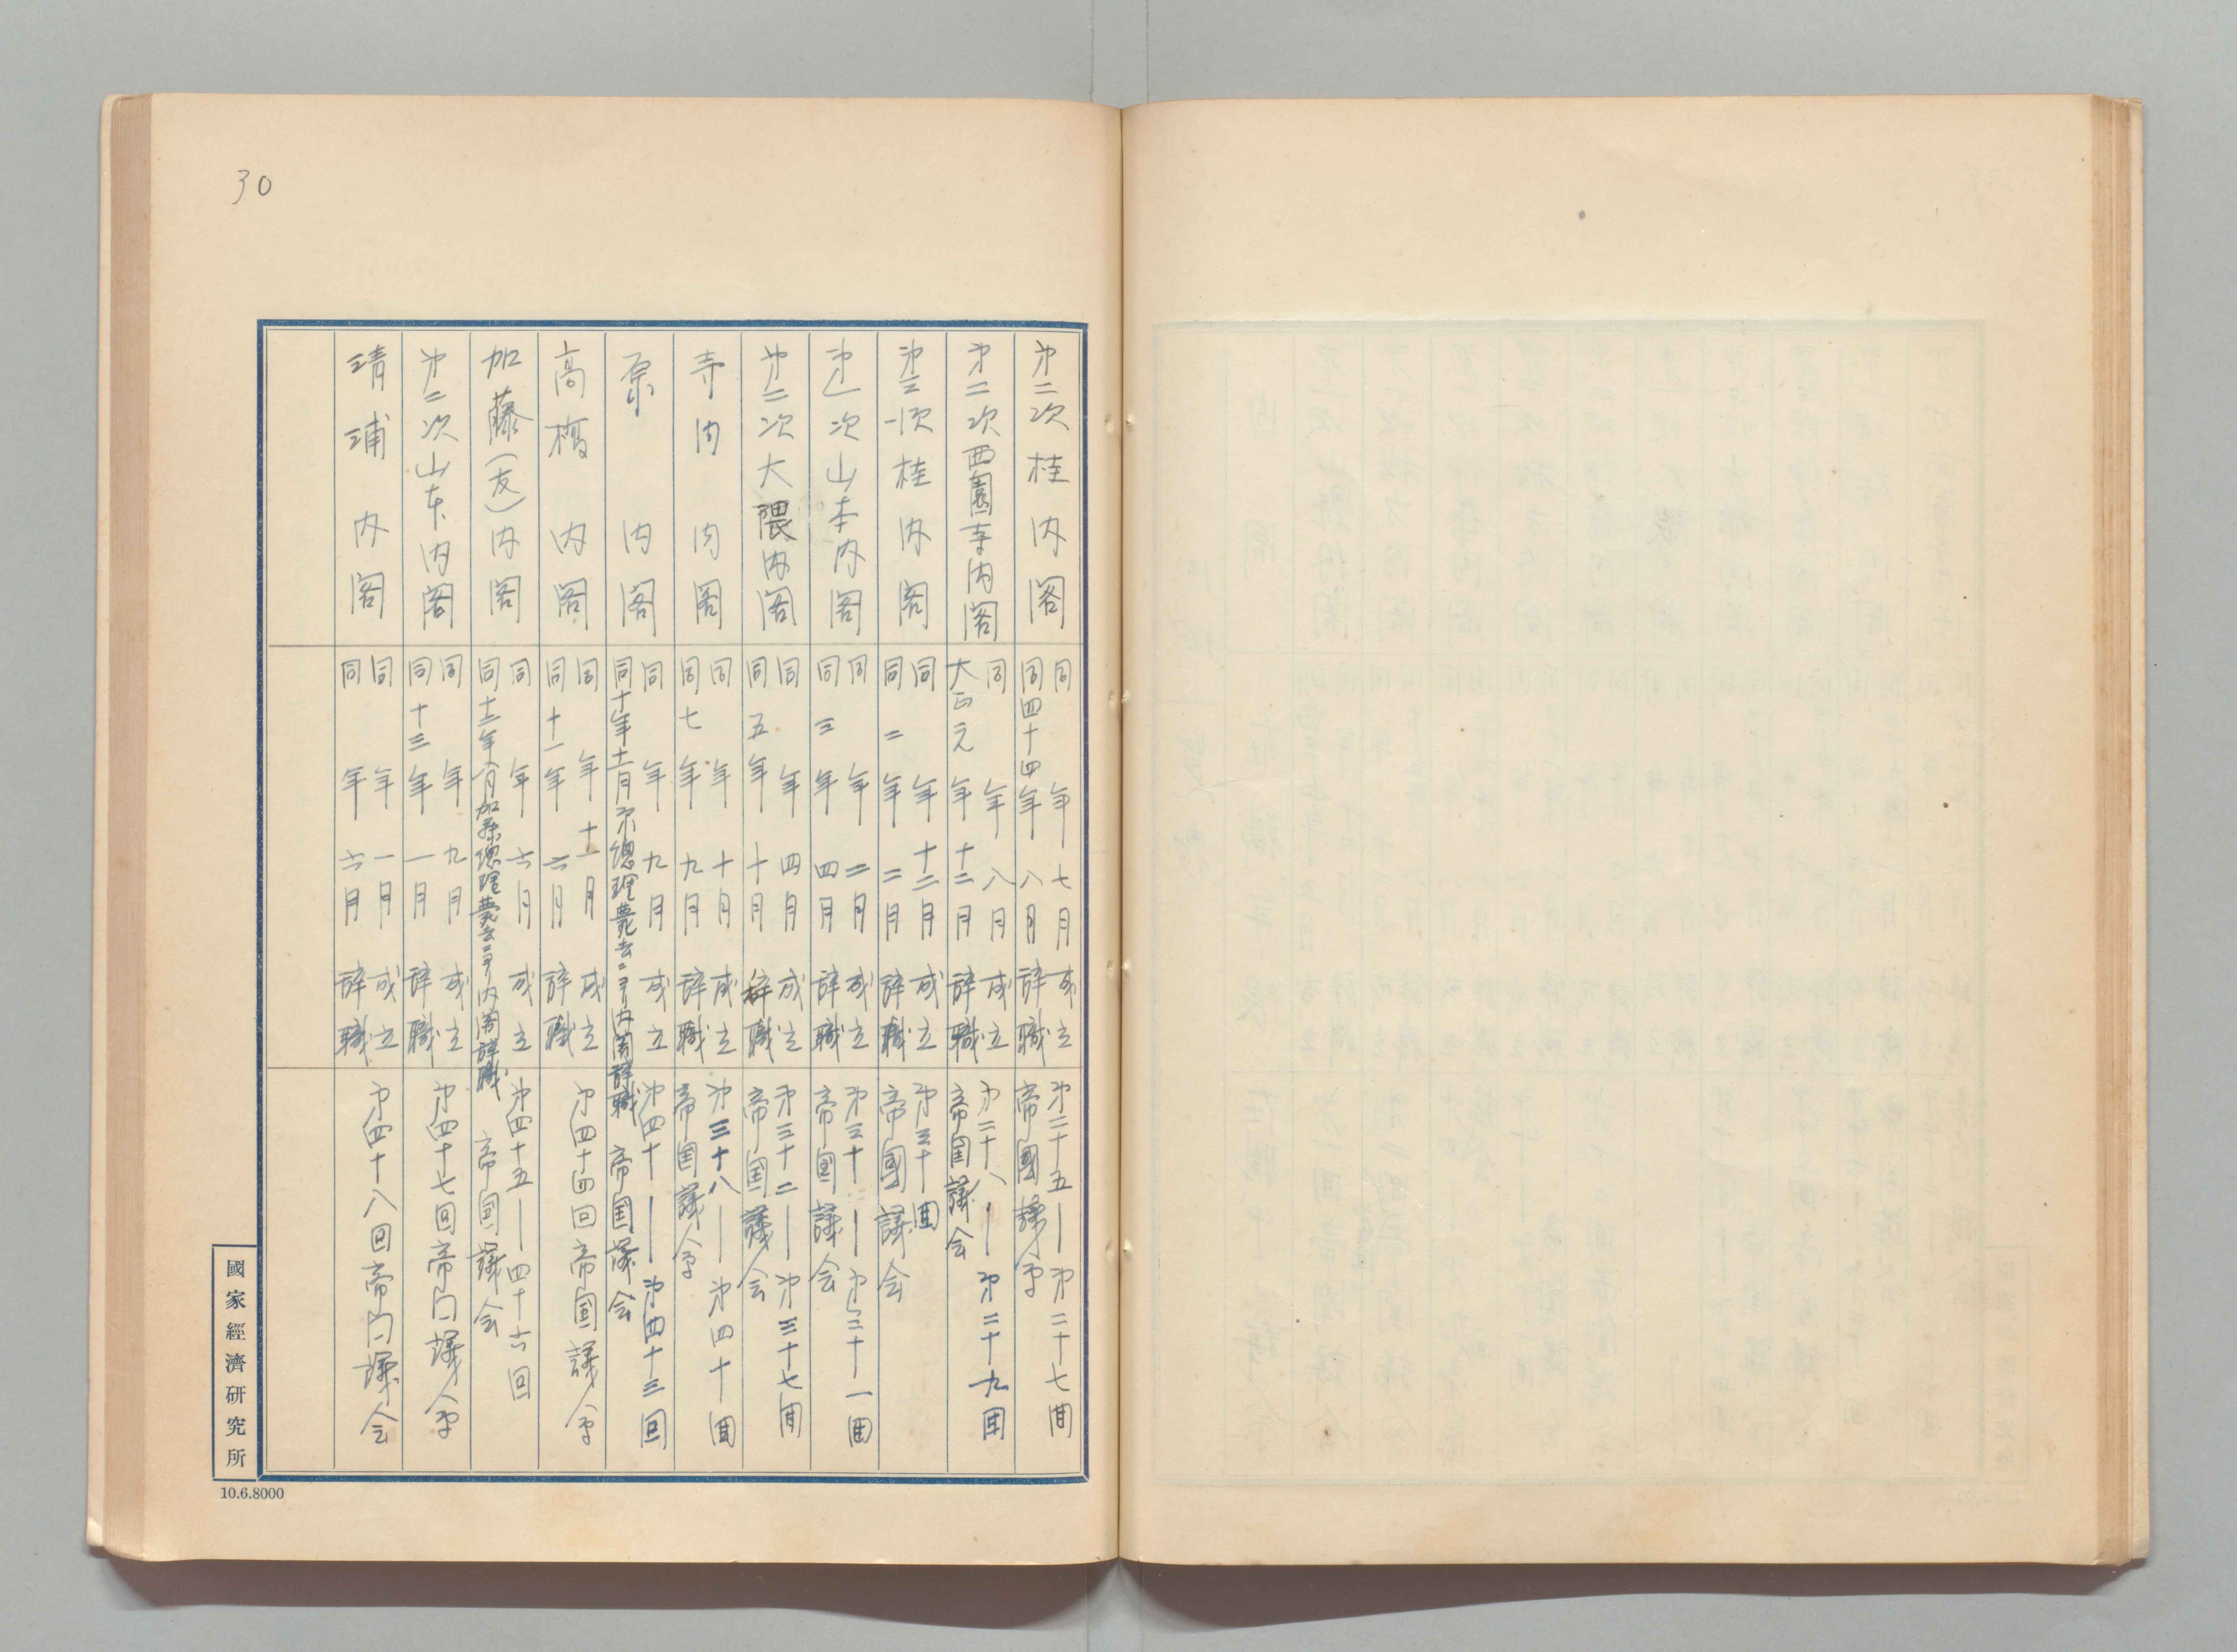 30
第二次桂内閣
同年七月成立
同四十四年八月辞職
第二十五―第二十七回
帝國議会
第二次西園寺内閣
同年八月成立
大正元年十二月辞職
第二十八―第二十九回
帝国議会
第三次桂内閣
同年十二月成立
同二年二月辞職
第三十回
帝國議会
第一次山本内閣
同年二月成立
同三年四月辞職
第三十―第三十一回
帝国議会
第二次大隈内閣
同年四月成立
同五年十月辞職
第三十二―第三十七回
帝国議会
寺内内閣
同年十月成立
同七年九月辞職
第三十八―第四十回
帝国議会
原内閣
同年九月成立
同十年十一月原總理薨去ニヨリ内閣辞職
第四十―第四十三回
帝国議会
高橋内閣
同年十一月成立
同十一年六月辞職
第四十四回帝国議会
加藤(友)内閣
同年六月成立
同十二年八月加藤總理薨去ニヨリ内閣辞職
第四十五―四十六回
帝国議会
第二次山本内閣
同年九月成立
同十三年一月辞職
第四十七回帝国議会
清浦内閣
同年一月成立
同年六月辞職
第四十八回帝国議会
國家經濟研究所
10.6.8000